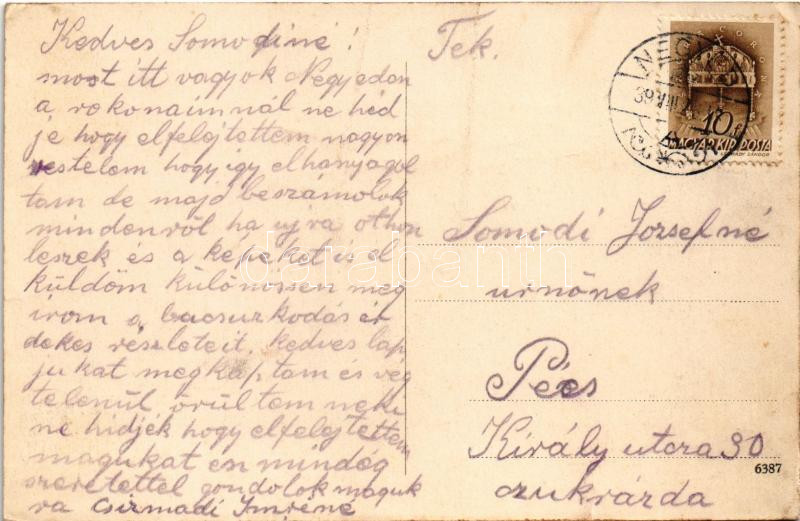 Kedves Somodiné!
most itt vagyok Négyeden
a rokonaimnál ne híd
je hogy elfelejtettem nagyon
restelem hogy igy elhanyagol
tam de majd beszámolok
mindenröl ha ujra othon
leszek és a képeket is el
küldöm különössen meg
irom a bucsurkodás ér
dekes részleteit. Kedves lap
jukat megkaptam és vég
telenül örültem neki
ne hidjék hogy elfelejtettem
magukat én mindég
szeretettel gondolok maguk
ra Csizmadi Imréné
Tek.
Somodi Jozsefné
urnönek
Pécs
Király utca 30
czukrárda
6387
10f
MAGYAR KIR. POSTA
darabanth